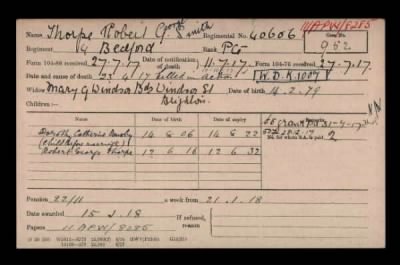 11/APW/8285
Name Thorpe Robert George Smith Regimental No. 40606
Case No.
952
Regiment 4 Bedford Rank Pte
Form 104-88 received 27.7.17 Date of notification of death 11.7.17 Form 104-76 received 27.7.17.
Date and cause of death 23.4.17 killed in action W.D.K 1007
Widow Mary G Windsor St Date of birth 14.2.79
Brighton
Children:—
Date of birth Date of expiry
Dorothy Catherine 14 8 06 14 8 22
Robert George Thorpe 12 6 16 12 6 32
No. for whom S.A. is paid 2
Pension 22/11 a week from 21.1.18
Date awarded 15.1.18 If refused, reason
Papers 11/APW/8285